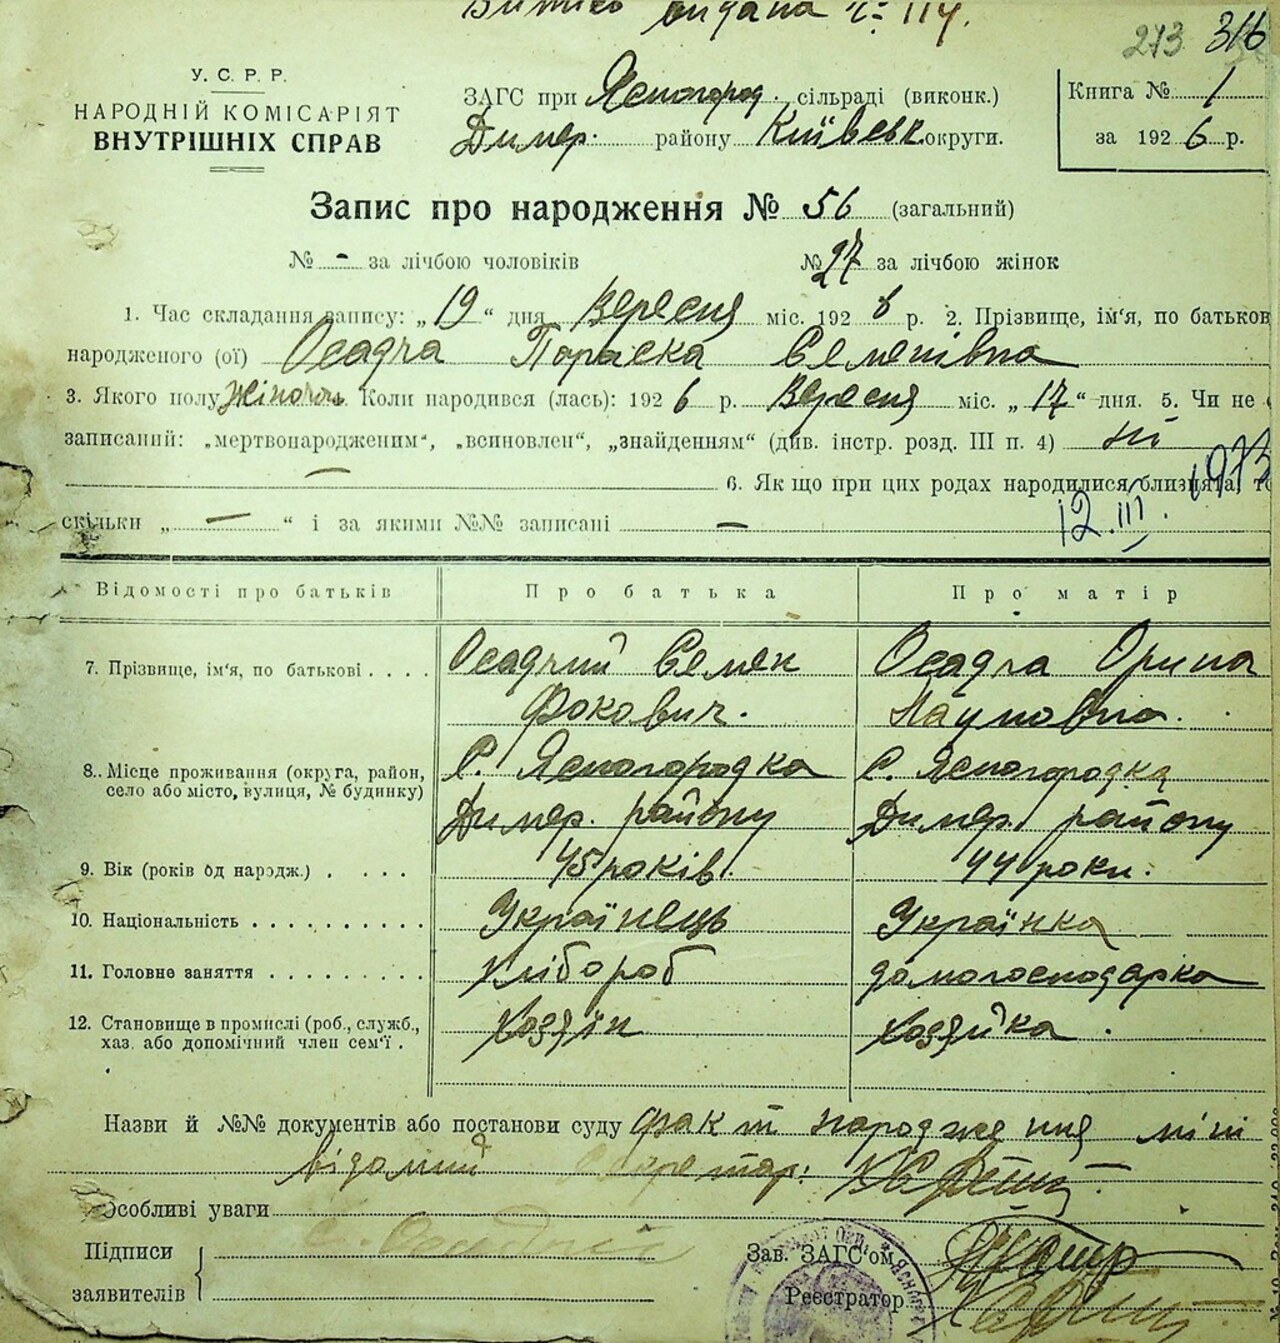 видана 114.
273 316
У. С. Р. Р.
НАРОДНІЙ КОМІСАРІЯТ
ВНУТРІШНІХ СПРАВ
ЗАГС при Ясногород. сільраді (виконк.)
Димер. району Київськ. округи.
Книга № 1
за 1926 р.
Запис про народження № 56 (загальний)
№ - за лічбою чоловіків № 27 за лічбою жінок
1. Час складання запису: „19“ дня Вересня міс. 1926 р. 2. Прізвище, ім'я, по батьков
народженого (ої) Осадча Параска Семенівна
3. Якого полу жіночь Коли народився (лась): 1926 р. Вересня міс. „17“ дня. 5. Чи не
записаний: „мертвонародженим“, „всиновлен“, „знайденням“ (див. інстр. розд. III п. 4) ні
— 6. Як що при цих родах народилися близнята, то
скільки „—“ і за якими №№ записані —
12.III. 1973
Відомості про батьків Про батька Про матір
7. Прізвище, ім'я, по батькові . . . . Осадчий Семен Осадча Орина
Фокович. Наумовна.
8. Місце проживання (округа, район, село або місто, вулиця, № будинку) С. Ясногородка С. Ясногородка
Димер. району Димер. району
9. Вік (років од народж.) . . . . 45 років. 44 роки.
10. Національність . . . . . . . . . . Українець Українка
11. Головне заняття . . . . . . . . . Хлібороб домогосподарка
12. Становище в промислі (роб., служб., хаз. або допомічний член сем'ї . Хозяїн Хозяйка
Назви й №№ документів або постанови суду факт народження міні
відомий Секретар:
Особливі уваги
Підписи
заявителів
Зав. ЗАГС'ом
Реєстратор